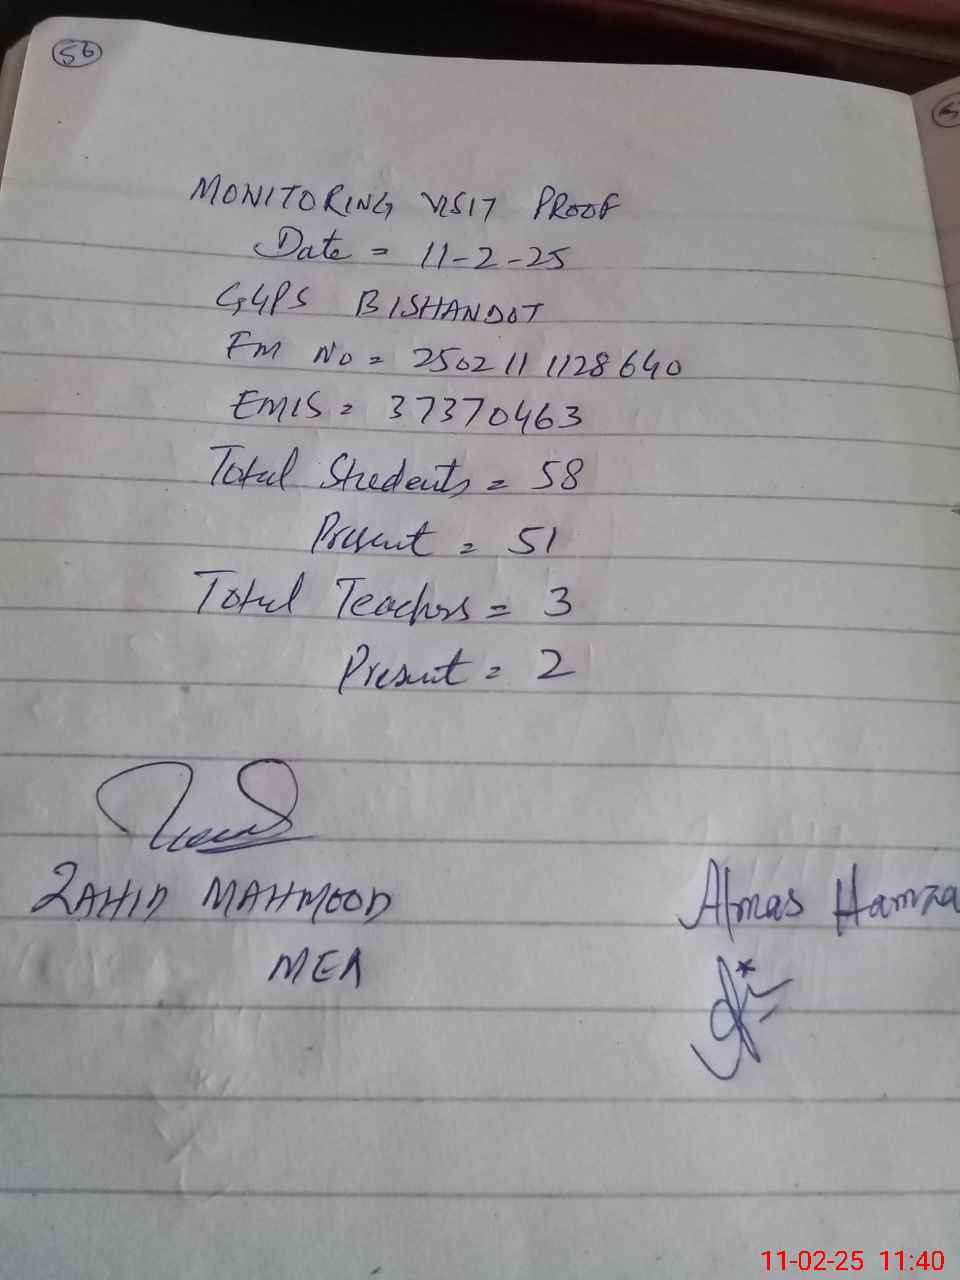 56
MONITORING VISIT PROOF
Date = 11-2-25
GGPS BISHANDOT
FM No = 2502111128640
EMIS = 37370463
Total Students = 58
Present = 51
Total Teachers = 3
Present = 2
ZAHID MAHMOOD
MEA
Almas Hamza
11-02-25 11:40